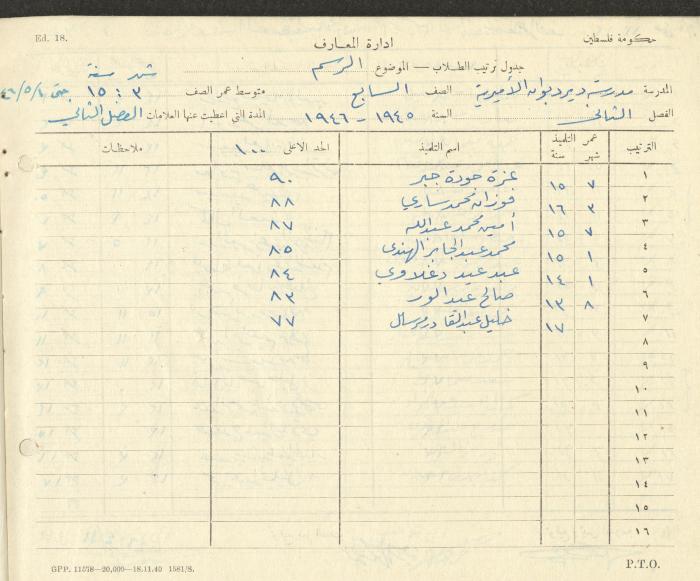 Ed. 18.
حكومة فلسطين
ادارة المعارف
جدول ترتيب الطلاب — الموضوع الرسم
شهر سنة
المدرسة مدرسة ديرديوان الأميرية الصف السابع متوسط عمر الصف ٣ : ١٥
الفصل الثاني السنة ١٩٤٥ - ١٩٤٦ المدة التي اعطيت عنها العلامات الفصل الثاني
الترتيب عمر التلميذ شهر سنة اسم التلميذ الحد الاعلى ١٠٠ ملاحظات
١ ٧ ١٥ عزة حودة جبر ٩٠
٢ ٣ ١٦ محمد ٨٨
٣ ٧ ١٥ أمين محمد عبدالله ٨٧
٤ ١ ١٥ محمد عبد الهندي ٨٥
٥ ١ ١٤ عبد عيد دغلاوي ٨٤
٦ ٨ ١٣ صالح ٨٣
٧ ١٧ خليل عبدالقادر مرسال ٧٧
٨
٩
١٠
١١
١٢
١٣
١٤
١٥
١٦
GPP. 11578—20,000—18.11.40 1581/S.
P.T.O.